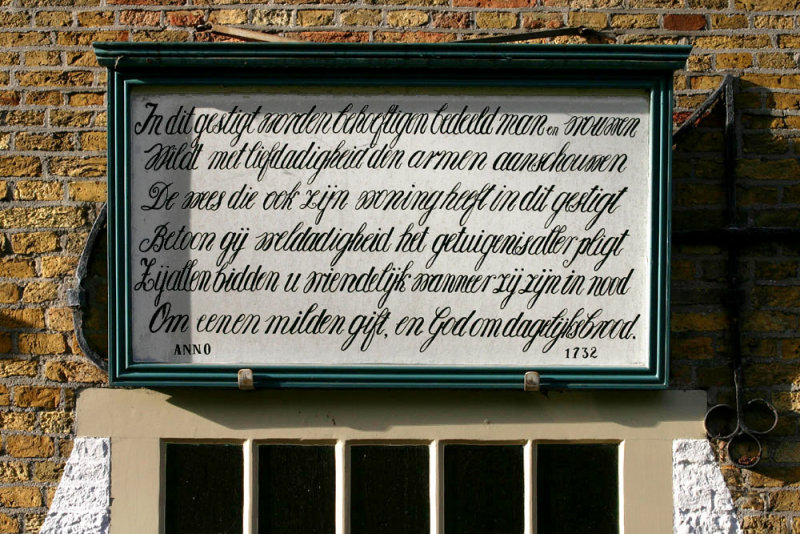 In dit gestigt worden behoeftigen bedeeld man en vrouwen
Wildt met liefdadigheid den armen aanschouwen
De wees die ook zijn woning heeft in dit gestigt
Betoon gij weldadigheid het getuigenis aller pligt
Zij allen bidden u vriendelijk wanneer zij zijn in nood
Om eenen milden gift, en God om dagelijksbrood.
ANNO 1732